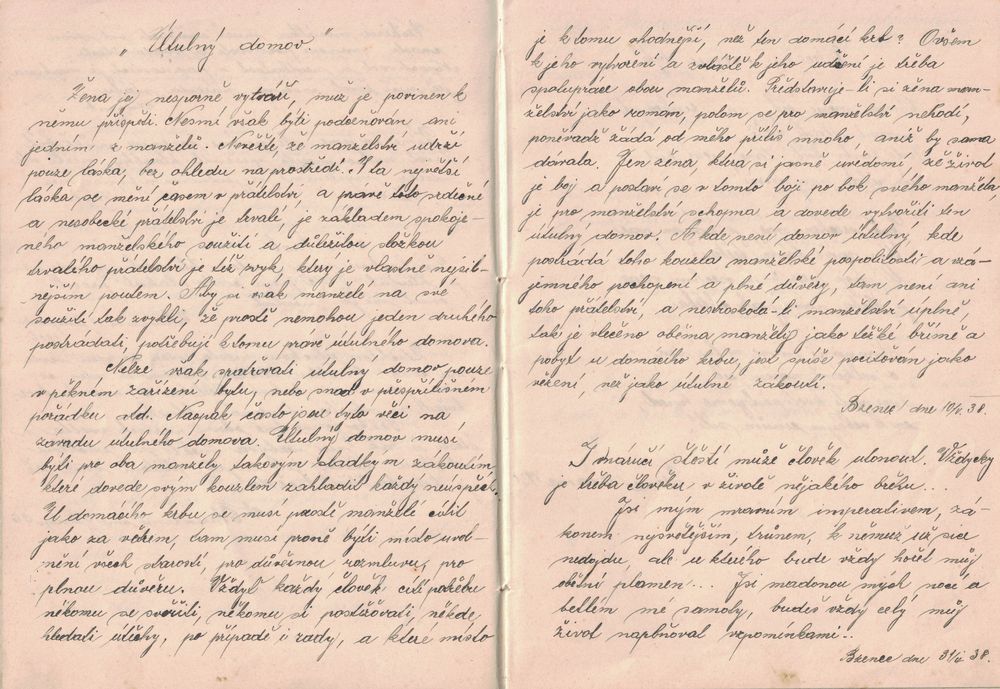 „Útulný domov."
Žena jej nesporně vytváří, muž je povinen k
němu přispěti. Nesmí však býti podceňován ani
jedním z manželů. Nevěřte, že manželství udrží
pouze láska, bez ohledu na prostředí. I ta největší
láska se mění časem v přátelství, a právě toto srdečné
a nesobecké přátelství je trvalé, je základem spokoje-
ného manželského soužití a důležitou složkou
trvalého přátelství je též zvyk, který je vlastně nejsil-
nějším poutem. Aby si však manželé na své
soužití tak zvykli, že prostě nemohou jeden druhého
postrádati, potřebují k tomu právě útulného domova.
Nelze však spatřovati útulný domov pouze
v pěkném zařízení bytu, nebo snad v přespřílišném
pořádku atd. Naopak často jsou tyto věci na
závadu útulného domova. Útulný domov musí
býti pro oba manžely takovým sladkým zákoutím,
které dovede svým kouzlem zahladit každý neúspěch.
U domácího krbu se musí prostě manželé cítit
jako za větrem, tam musí prostě býti místo uvol-
nění všech starostí, pro důvěrnou rozmluvu, pro
plnou důvěru. Vždyť každý člověk cítí potřebu
někomu se svěřiti, někomu si postěžovati, někde
hledati útěchy, po případě i rady, a které místo
je k tomu vhodnější, než ten domácí krb? Ovšem
k jeho vytvoření a zvláště k jeho udržení je třeba
spolupráce obou manželů. Představuje-li si žena man-
želství jako román, potom se pro manželství nehodí,
poněvadž žádá od něho příliš mnoho aniž by sama
dávala. Jen žena, která si jasně uvědomí, že život
je boj a postaví se v tomto boji po bok svého manžela,
je pro manželství schopna a dovede vytvořiti ten
útulný domov. A kde není domov útulný, kde
postrádá toho kouzla manželské pospolitosti a vzá-
jemného pochopení a plné důvěry, tam není ani
toho přátelství, a neztroskotá-li manželství úplně,
tak je vlečeno oběma manžely jako těžké břímě a
pobyt u domácího krbu, jest spíše pociťován jako
vězení, než jako útulné zákoutí.
Bzenec dne 38.
I v náručí štěstí může člověk utonout. Vždycky
je třeba člověku v životě nějakého břehu...
Jsi mým mravním imperativem, zá-
konem nejsvětějším, trůnem, k němuž už sice
nedojdu, ale u kterého bude vždy hořet můj
obětní plamen!... Jsi madonou mých nocí a
betlém mé samoty, budeš vždy celý můj
život naplňovat vzpomínkami..
Bzenec dne 38.